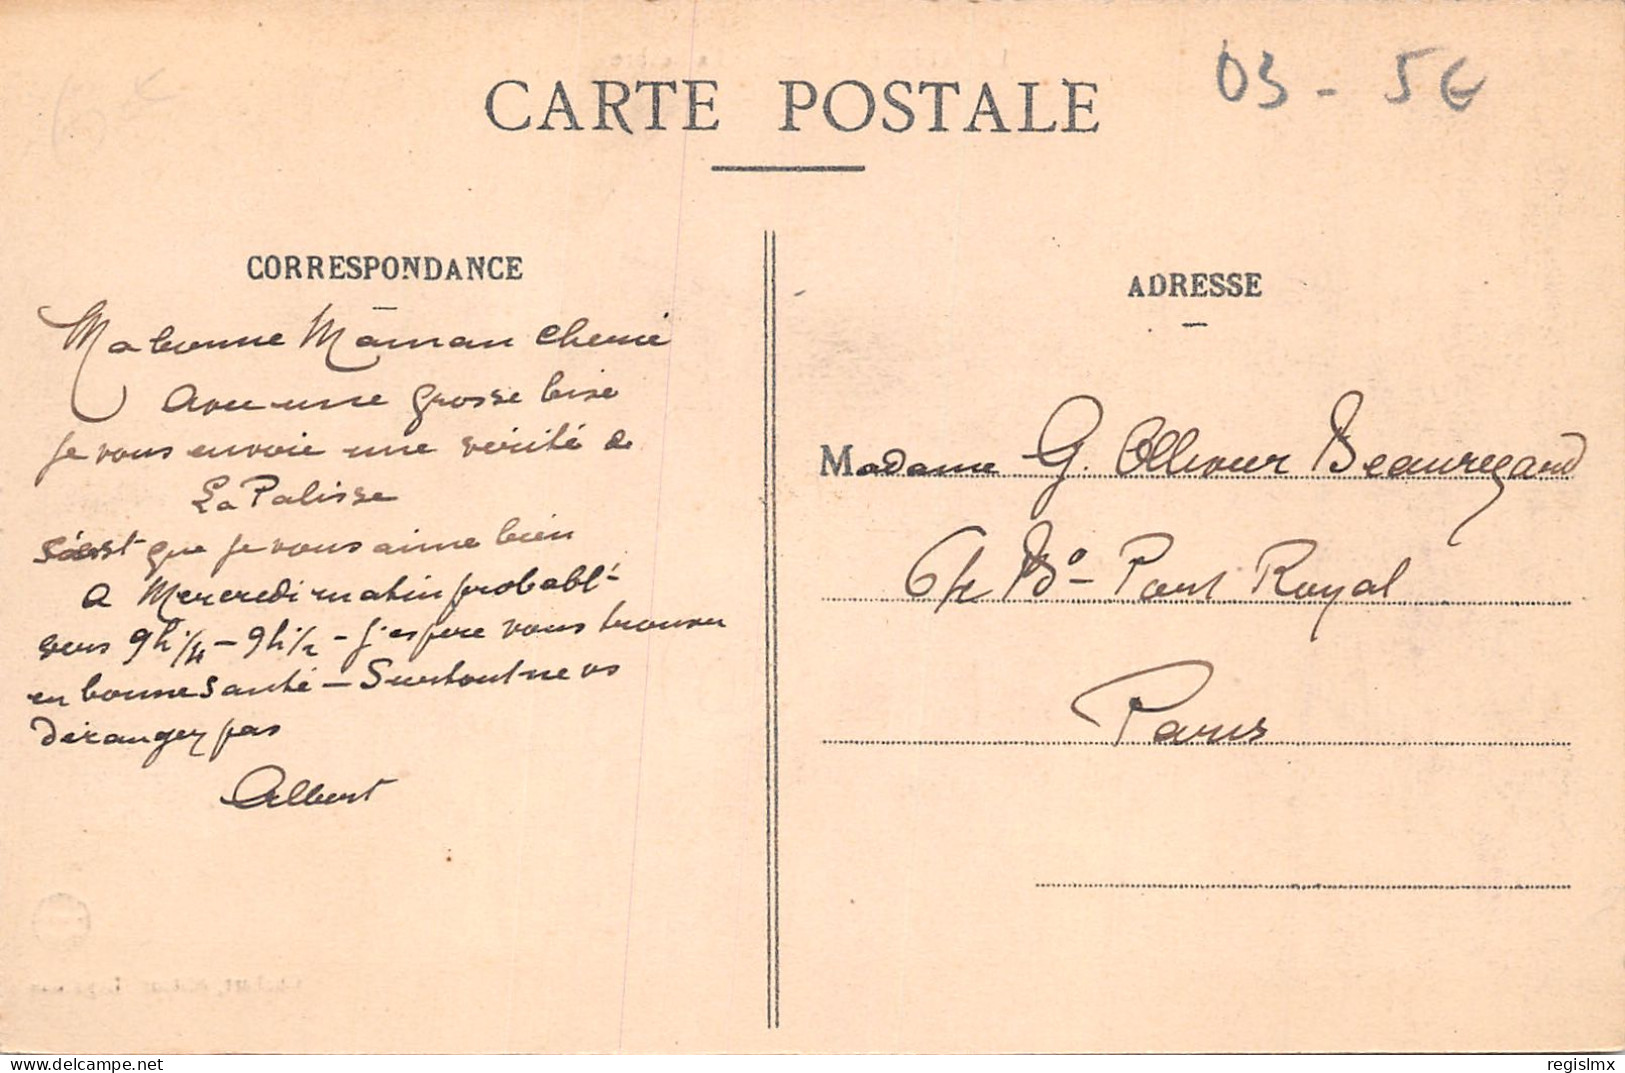 CARTE POSTALE
03 - 5€
CORRESPONDANCE
Ma bonne Maman Cherie
Avec une grosse bise
je vous envoie une vérité de
La Palisse
c'est que je vous aime bien
A Mercredi matin probablt
vers 9h 1/4 - 9h 1/2 - J'espère vous trouver
en bonne santé - Surtout ne vs
dérangez pas
Albert
ADRESSE
Madame G. Ollivier Beauregard
Bd Port Royal
Paris
www.delcampe.net
regislmx